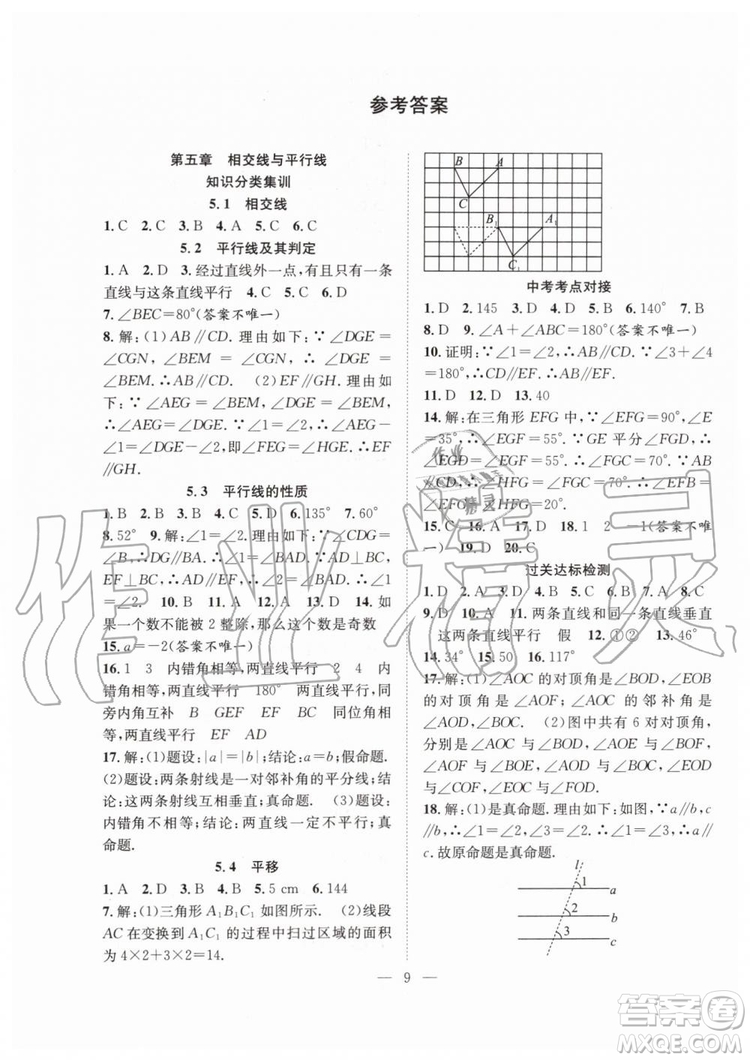 参考答案
第五章 相交线与平行线
知识分类集训
5.1 相交线
1. C 2. C 3. B 4. A 5. C 6. B 7. D
5.2 平行线及其判定
1. A 2. D 3. 经过直线外一点,有且只有一条
直线与这条直线平行 4. C 5. B 6. D
7. ∠BEC=80°(答案不唯一)
8. 解:(1)AB∥CD. 理由如下:∵∠DGE=
∠CGN,∠BEM=∠DGE,∴∠BEM=
∠CGN,∴AB∥CD. (2)EF∥GH. 理由如
下:∵∠AEG=∠BEM,∠BEM=∠DGE,
∴∠AEG=∠DGE. 又∵∠1=∠2,∴∠AEG
-∠1=∠DGE-∠2,即∠FEG=∠HGE,∴EF
∥GH.
5.3 平行线的性质
1. B 2. A 3. D 4. C 5. D 6. 135° 7. 60°
8. 52° 9. 解:∠1=∠2. 理由如下:∵∠CDG=
∠B,∴DG∥BA. ∴∠1=∠BAD. ∵AD∥EF,
∴∠2=∠BAD. ∴∠1
=∠2. 10. B 11. A 12. D 13. A 14. 如
果一个数不能被 2 整除,那么这个数是奇数
15. a=-2(答案不唯一)
16. 1 3 内错角相等,两直线平行 2 4 内
错角相等,两直线平行 180° 两直线平行,同
旁内角互补 B GEF EF BD 同位角相
等,两直线平行 EF AD
17. 解:(1)题设:|a|=|b|;结论:a=b;假命题.
(2)题设:两条射线是一对邻补角的平分线;结
论:这两条射线互相垂直;真命题. (3)题设:
内错角不相等;结论:两直线一定不平行;真
命题.
5.4 平移
1. A 2. D 3. B 4. C 5. 5 cm 6. 144
7. 解:(1)三角形 A₁B₁C₁ 如图所示. (2)线段
AC 在变换到 A₁C₁ 的过程中扫过区域的面积
为 4×2+3×2=14.
B A
C
B₁ A₁
C₁
中考考点对接
1. D 2. 145 3. D 4. B 5. B 6. 140° 7. B
8. D 9. ∠A+∠ABC=180°(答案不唯一)
10. 证明:∵∠1=∠2,∴∠3=∠4. 又∵∠3+∠4
=180°,∴∠4=∠3=90°,∴AB⊥CD.
11. D 12. D 13. 40
14. 解:在三角形 EFG 中,∵∠EFG=90°,∠E
=35°,∴∠EGF=55°. ∵GE 平分∠FGD,∴
∠EGD=∠EGF=55°. ∴∠FGC=70°. ∵AB∥
CD,∴∠EHB=∠EGD=55°. ∴∠EFB=
∠EFG-∠HFG=20°.
15. C 16. A 17. D 18. 1 2 (答案不唯
一) 19. D 20. C
过关达标检测
1. D 2. A 3. C 4. C 5. B 6. D 7. A 8. C
9. D 10. B 11. 两条直线和同一条直线垂直
这两条直线平行 假 12. ①② 13. 46°
14. 34° 15. 50 16. 117°
17. 解:(1)∠AOC 的对顶角是∠BOD,∠EOB
的对顶角是∠AOF;∠AOC 的邻补角是
∠AOD,∠BOC. (2)图中共有 6 对对顶角,
分别是∠AOC 与∠BOD,∠AOE 与
∠BOF,∠DOE 与∠COF,∠AOD 与
∠BOC,∠AOF 与∠BOE,∠DOF 与∠EOC.
18. 解:(1)是真命题. 理由如下:如图,∵a∥b,c
∥b,∴∠1=∠2,∠3=∠2. ∴∠1=∠3. ∴a∥
c. 故原命题是真命题.
l
1 a
2 b
3 c
9
作业精灵
作业精灵
答案圈
MXQE.COM